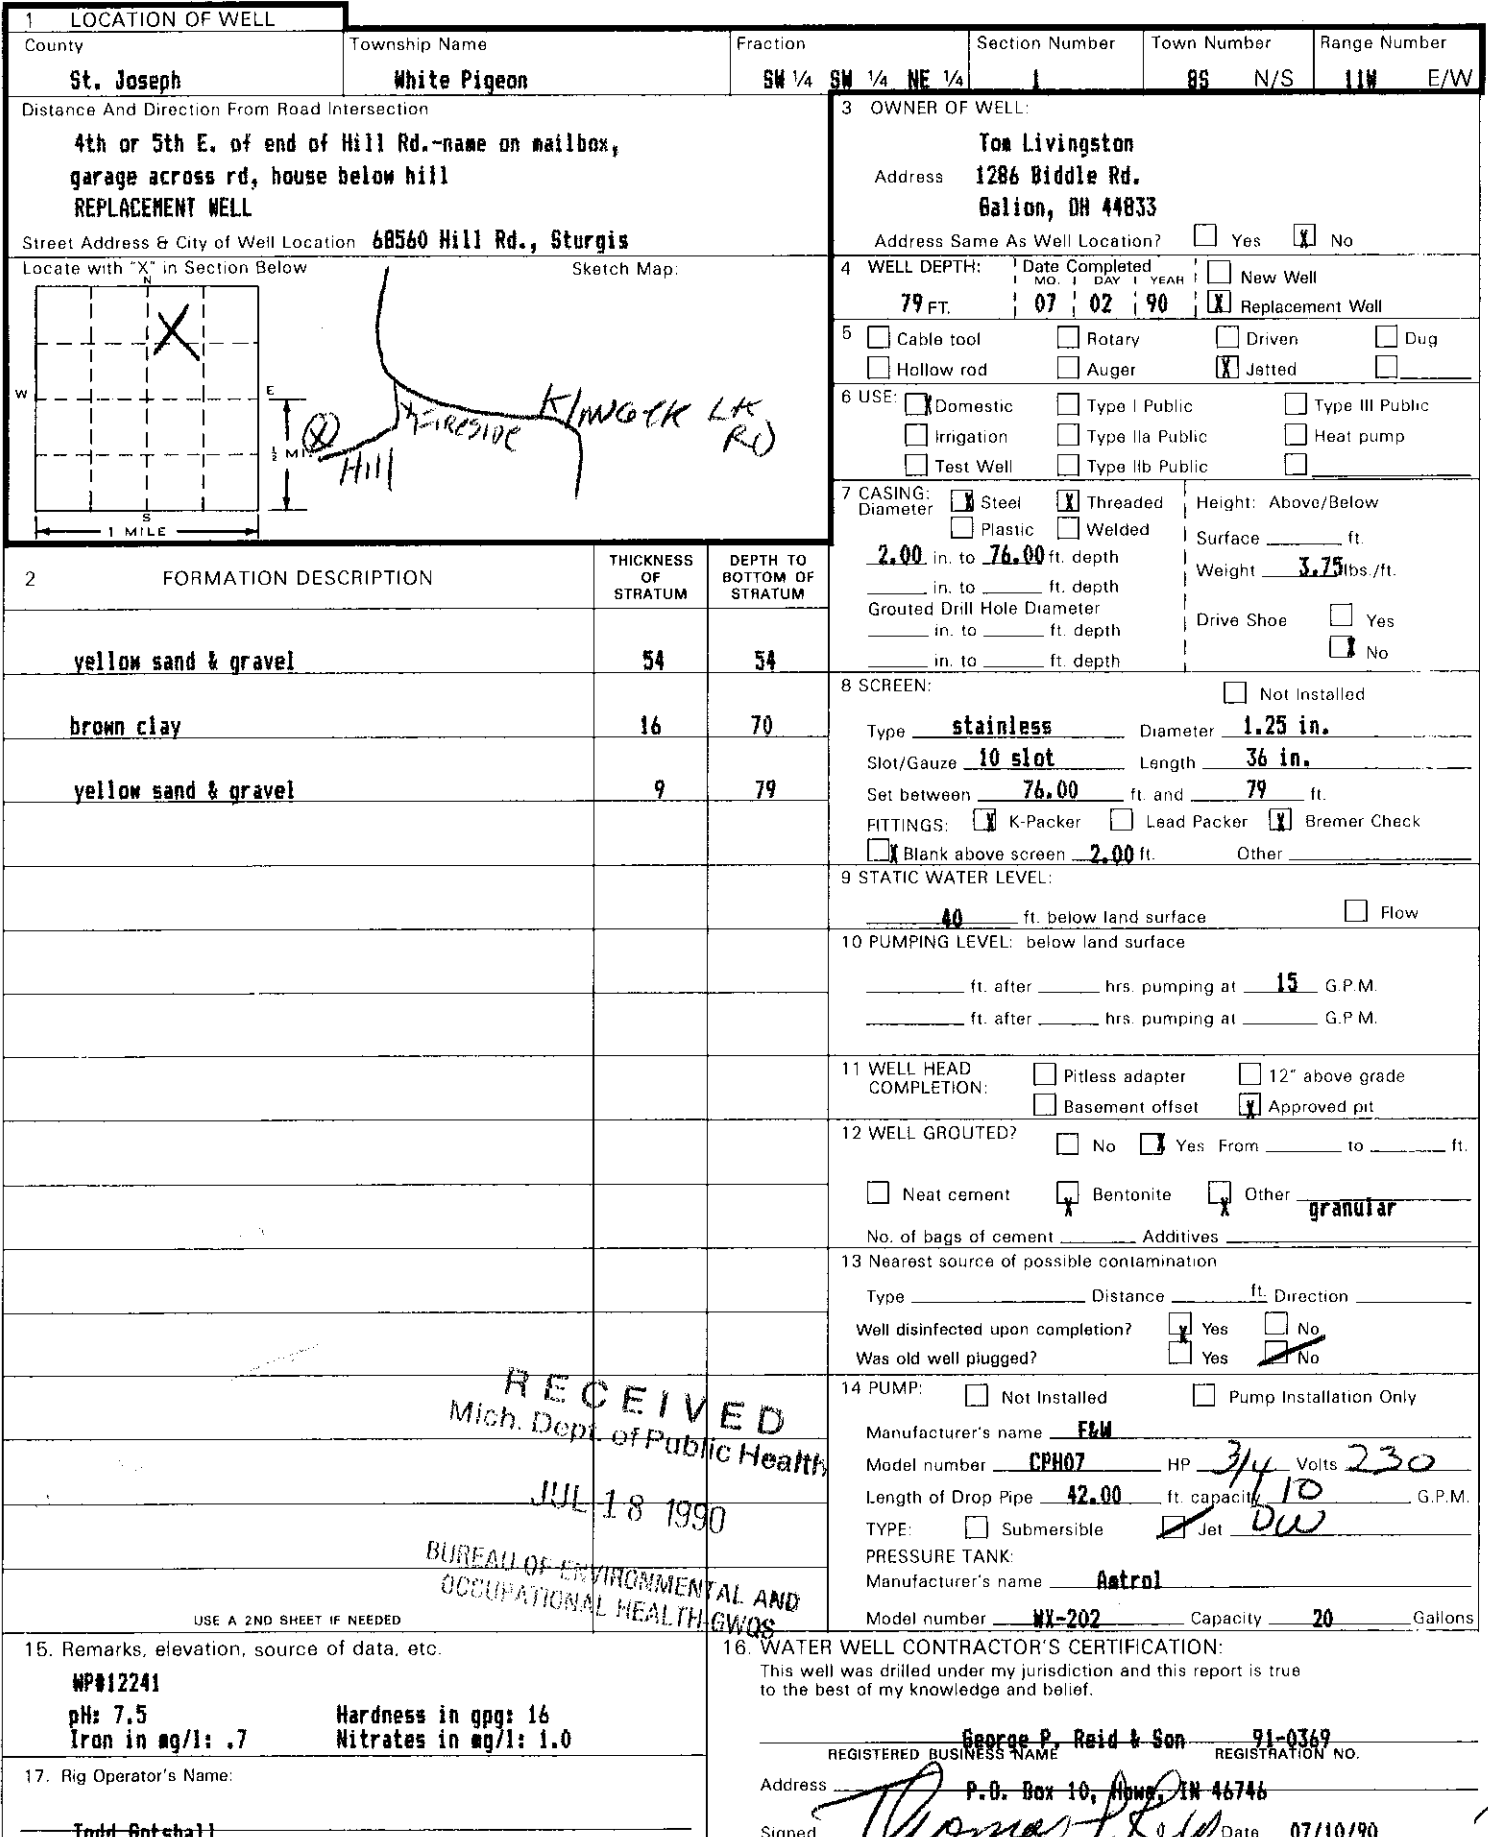 1 LOCATION OF WELL
County Township Name Fraction Section Number Town Number Range Number
St. Joseph White Pigeon SW 1/4 SW 1/4 NE 1/4 1 8S N/S 11W E/W
Distance And Direction From Road Intersection
4th or 5th E. of end of Hill Rd.-name on mailbox,
garage across rd, house below hill
REPLACEMENT WELL
Street Address & City of Well Location 68560 Hill Rd., Sturgis
Locate with "X" in Section Below Sketch Map:
N
X
W E
1/2 MI.
S
1 MILE
X Hill
Fireside
Klinger LK
RD
3 OWNER OF WELL:
Tom Livingston
Address 1286 Biddle Rd.
Galion, OH 44833
Address Same As Well Location? Yes X No
4 WELL DEPTH: Date Completed New Well
MO. DAY YEAR
79 FT. 07 02 90 X Replacement Well
5 Cable tool Rotary Driven Dug
Hollow rod Auger X Jetted
6 USE: X Domestic Type I Public Type III Public
Irrigation Type IIa Public Heat pump
Test Well Type IIb Public
7 CASING: X Steel X Threaded Height: Above/Below
Diameter Plastic Welded
Surface ft.
2.00 in. to 76.00 ft. depth
Weight 3.75 lbs./ft.
in. to ft. depth
Grouted Drill Hole Diameter
Drive Shoe Yes
in. to ft. depth
X No
in. to ft. depth
2 FORMATION DESCRIPTION THICKNESS OF STRATUM DEPTH TO BOTTOM OF STRATUM
yellow sand & gravel 54 54
brown clay 16 70
yellow sand & gravel 9 79
8 SCREEN: Not Installed
Type stainless Diameter 1.25 in.
Slot/Gauze 10 slot Length 36 in.
Set between 76.00 ft. and 79 ft.
FITTINGS: X K-Packer Lead Packer X Bremer Check
X Blank above screen 2.00 ft. Other
9 STATIC WATER LEVEL:
40 ft. below land surface Flow
10 PUMPING LEVEL: below land surface
ft. after hrs. pumping at 15 G.P.M.
ft. after hrs. pumping at G.P.M.
11 WELL HEAD COMPLETION: Pitless adapter 12" above grade
Basement offset X Approved pit
12 WELL GROUTED? No X Yes From to ft.
Neat cement X Bentonite X Other granular
No. of bags of cement Additives
13 Nearest source of possible contamination
Type Distance ft. Direction
Well disinfected upon completion? X Yes No
Was old well plugged? Yes No
14 PUMP: Not Installed Pump Installation Only
Manufacturer's name F&W
Model number CPH07 HP 3/4 Volts 230
Length of Drop Pipe 42.00 ft. capacity 10 G.P.M.
TYPE: Submersible Jet DW
PRESSURE TANK:
Manufacturer's name Amtrol
Model number WX-202 Capacity 20 Gallons
RECEIVED
Mich. Dept. of Public Health
JUL 18 1990
BUREAU OF ENVIRONMENTAL AND
OCCUPATIONAL HEALTH-GWQS
USE A 2ND SHEET IF NEEDED
15. Remarks, elevation, source of data, etc.
WP#12241
pH: 7.5 Hardness in gpg: 16
Iron in mg/l: .7 Nitrates in mg/l: 1.0
17. Rig Operator's Name:
Todd Gotshall
16. WATER WELL CONTRACTOR'S CERTIFICATION:
This well was drilled under my jurisdiction and this report is true
to the best of my knowledge and belief.
George P. Reid & Son 91-0369
REGISTERED BUSINESS NAME REGISTRATION NO.
Address P.O. Box 10, Howe, IN 46746
Signed Thomas P Reid Date 07/10/90